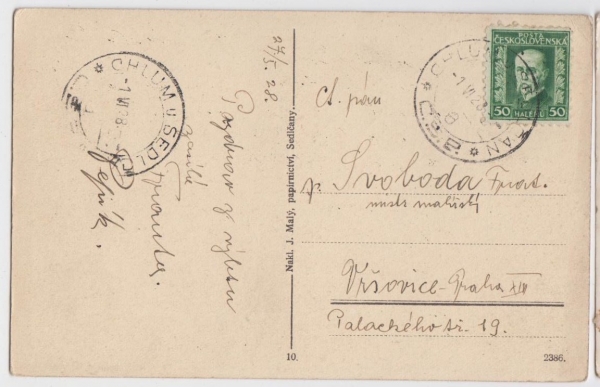 27/5. 28
Pozdrav z výletu
zasílá
Franta
CHLUM U SEDL
-1.VI.28
Nakl. J. Malý, papírnictví, Sedlčany.
10.
POŠTA
ČESKOSLOVENSKÁ
50 HALÉŘŮ 50
Ct. pán
Svoboda Frant.
Vršovice-Praha XIII
Palackého tř. 19.
2386.